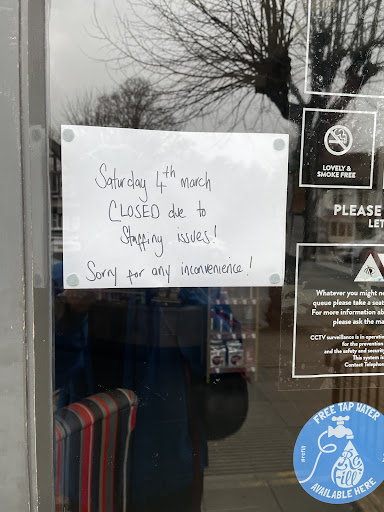 Saturday 4th march
CLOSED due to
Staffing issues!
Sorry for any inconvenience!
LOVELY &
SMOKE FREE
PLEASE
LET
Whatever you might ne
queue please take a seat
For more information ab
please ask the ma
CCTV surveillance is in operatio
for the prevention
and the safety and security
This system is
Contact Telephon
FREE TAP WATER
#refill
Refill
AVAILABLE HERE